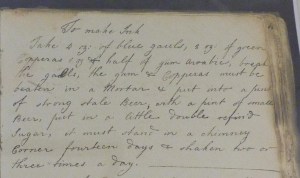 To make Ink
Take 4 oz: of blue gauls, 2 oz. of green
Copperas & half of gum
the gauls, the gum & Copperas must be
beaten in a Mortar & put into a pint
of strong stale Beer, with a pint of small
Beer, put in a little double refind
Sugar, it must stand in a chimney
Corner fourteen days & shaken two or
three times a day.